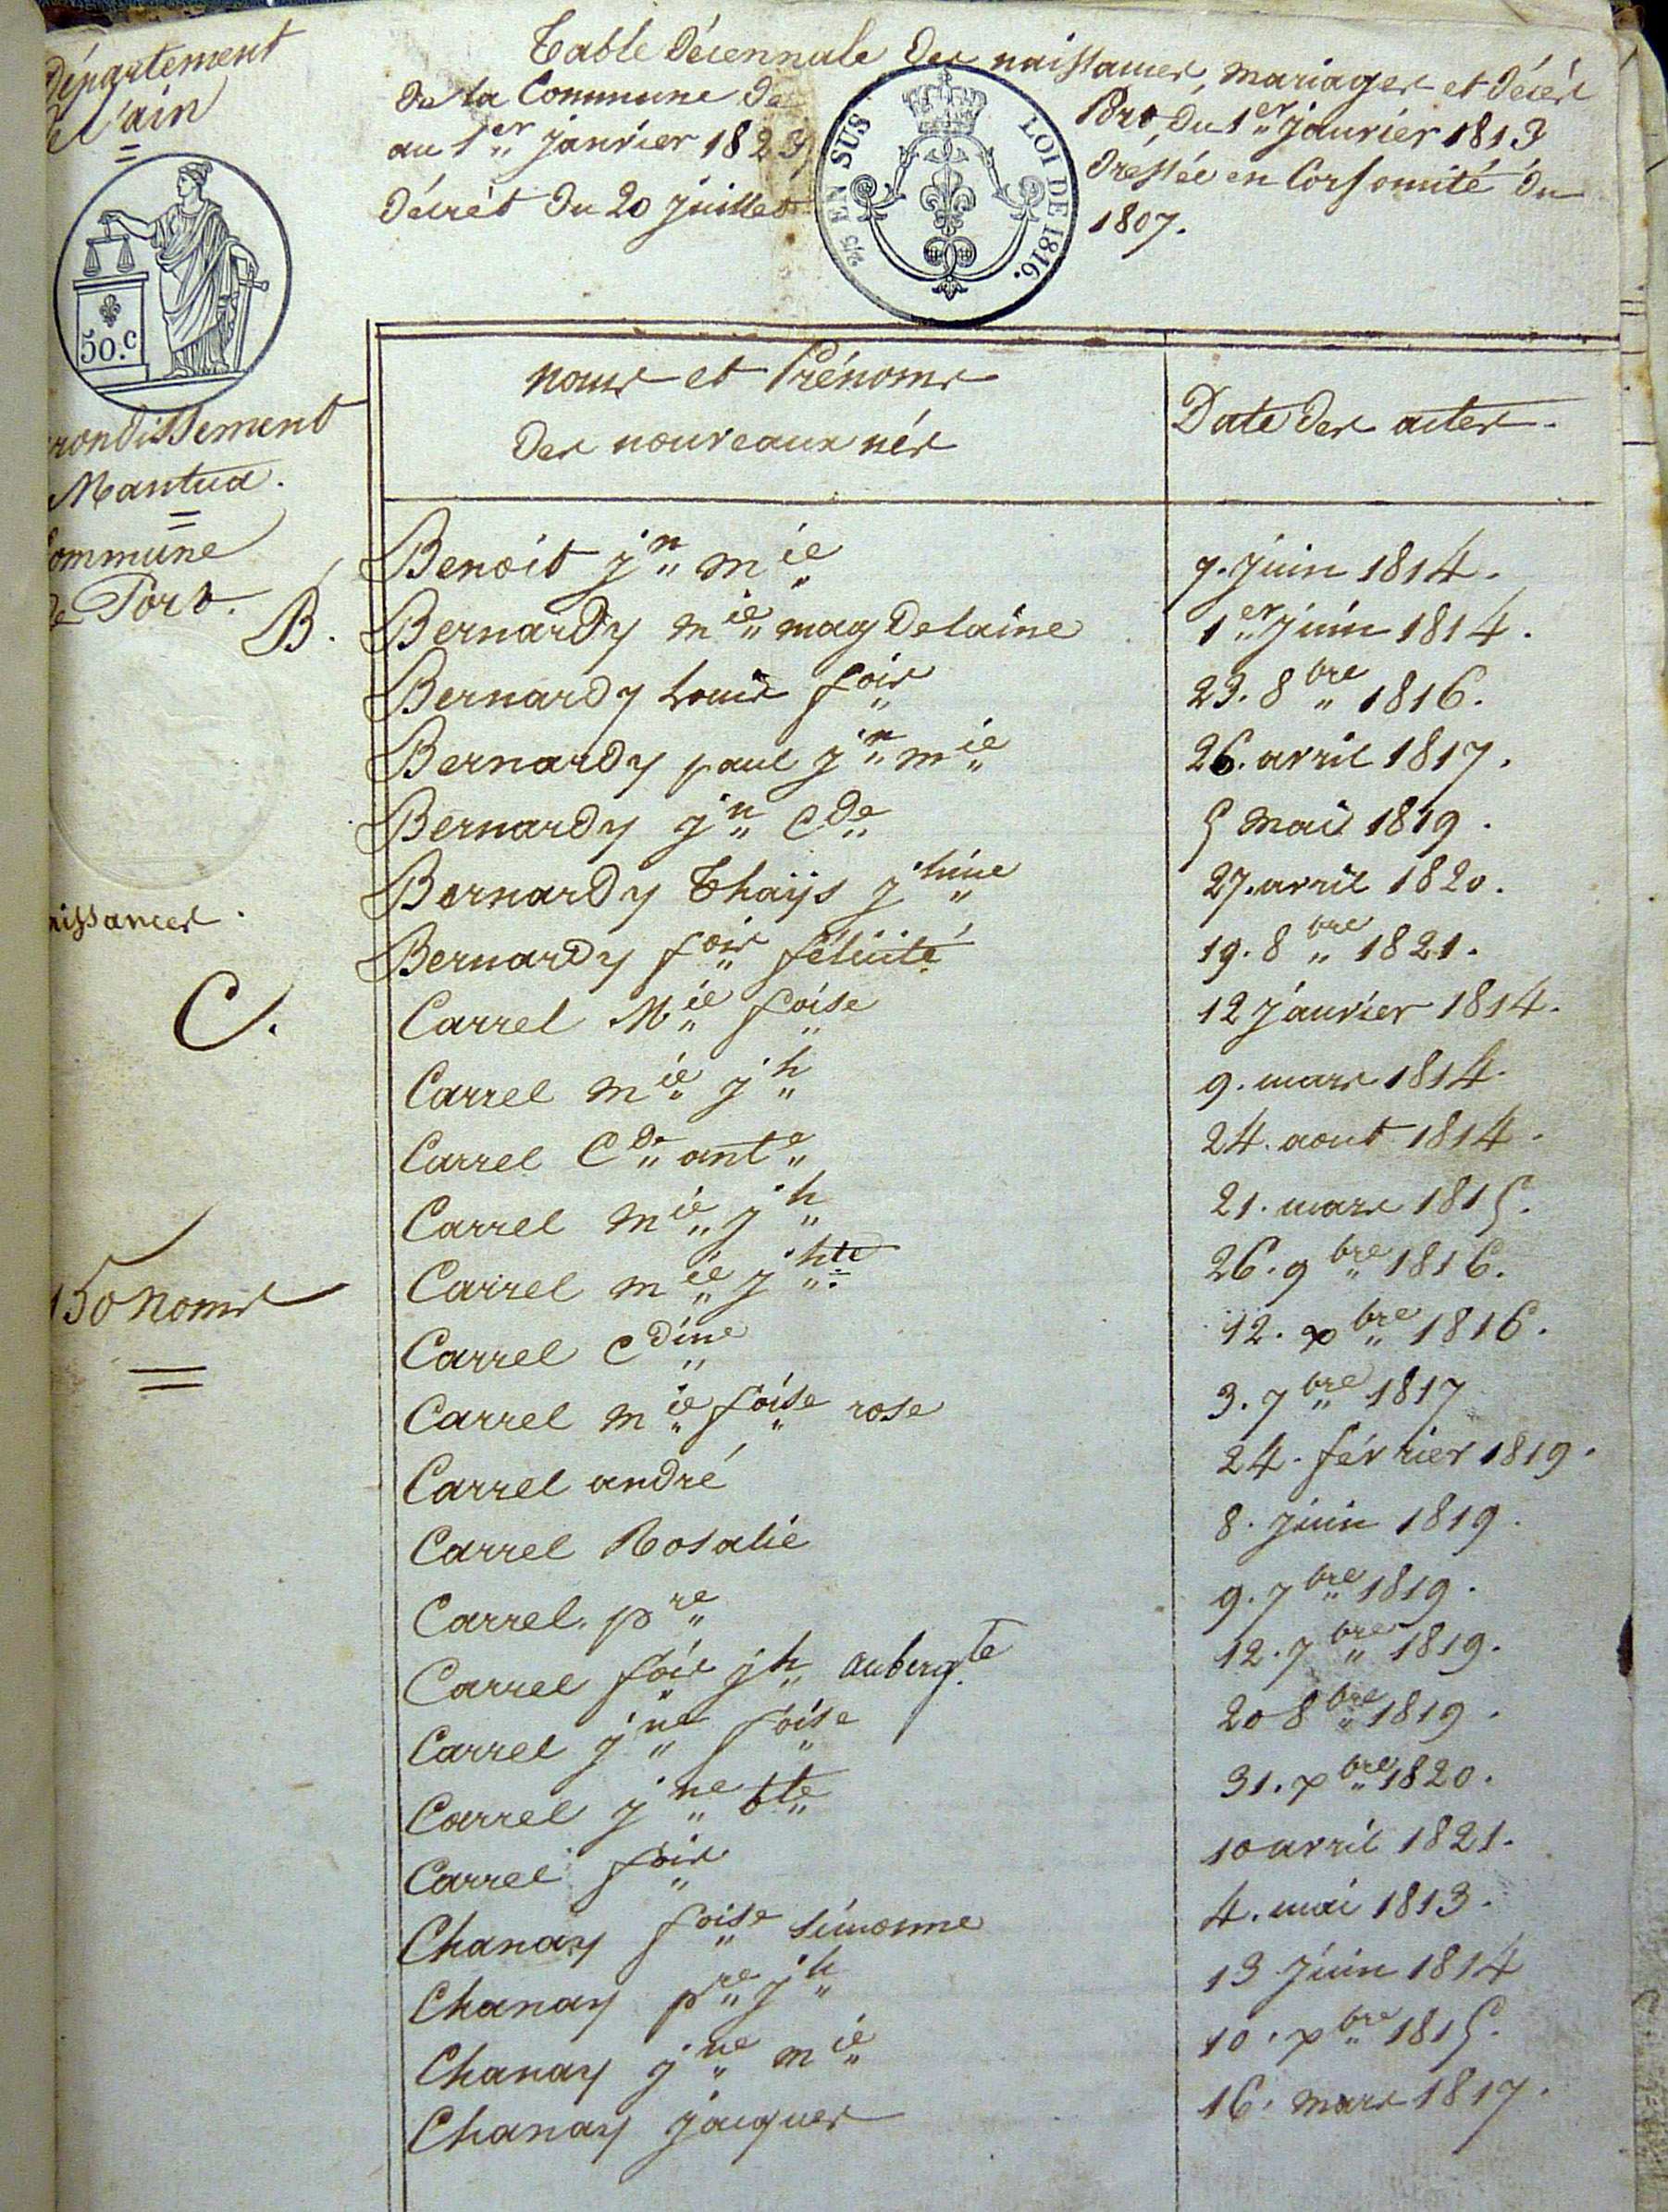 Département
de l'ain
Table Décennale des naissances, mariages et décès
de la Commune de Port, du 1er janvier 1813
au 1er janvier 1823, dréssée en Corformité du
décrèt du 20 juillet 1807.
25 EN SUS
LOI DE 1816.
50.c
rondissement
Mantua.
ommune
de Port.
noms et Prénoms
des nouveaux nés
Date des actes.
Benoit jn mie 7. juin 1814.
B. Bernardy mie magdelaine 1er juin 1814.
Bernardy Louis fois 23. 8bre 1816.
Bernardy paul jn mie 26. avril 1817.
Bernardy jn Cde 5 mai 1819.
Bernardy Thaïjs jhine 27. avril 1820.
aissances.
Bernardy fois félicité 19. 8bre 1821.
C. Carrel Mie foise 12 janvier 1814.
Carrel mie jh 9. mars 1814.
Carrel Cde ante 24. aout 1814.
Carrel mie jh 21. mars 1815.
Carrel mie jhte 26. 9bre 1816.
150 noms
Carrel Cdine 12. xbre 1816.
Carrel mie foise rose 3. 7bre 1817
Carrel andré 24. février 1819.
Carrel Rosalie 8. juin 1819.
Carrel. pre 9. 7bre 1819.
Carrel fois jh auberg.te 12. 7bre 1819.
Carrel jne foise 20 8bre 1819.
Carrel jne bte 31. xbre 1820.
Carrel fois 10 avril 1821.
Chanay foise simonne 4. mai 1813.
Chanay pre jh 13 juin 1814
Chanay jne mie 10. xbre 1815.
Chanay jacques 16. mars 1817.